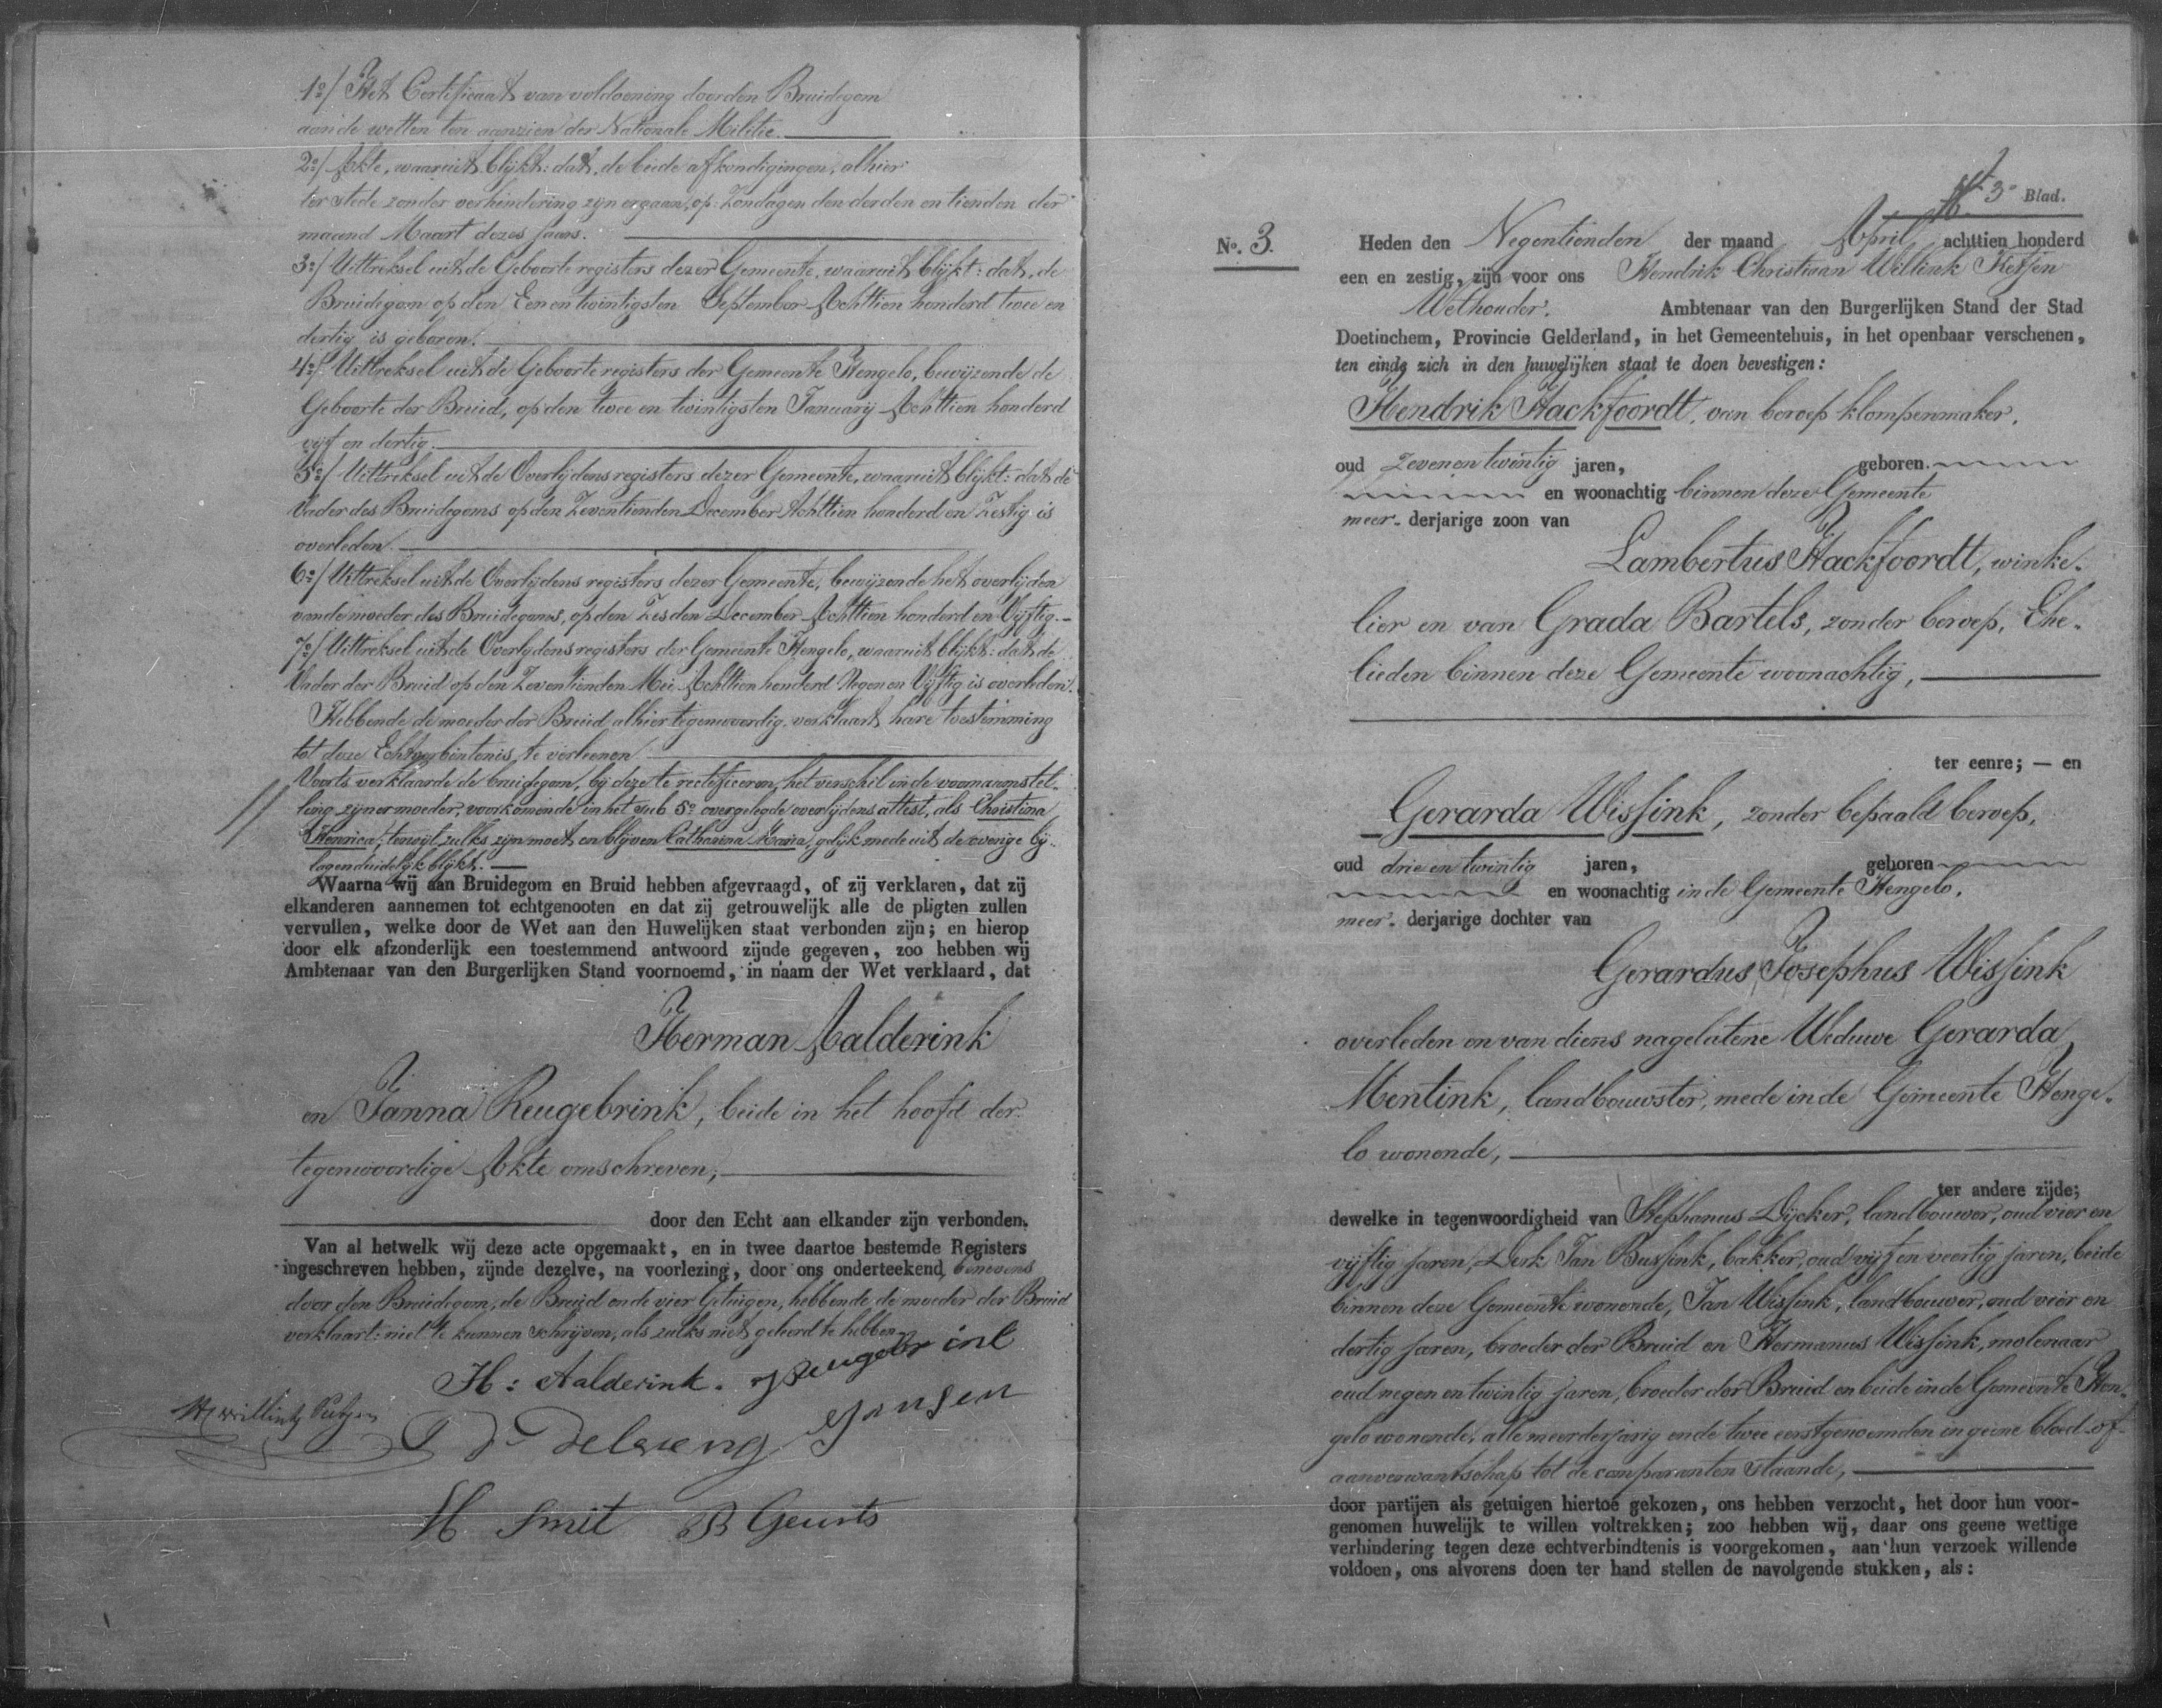 1o/ Het Certificaat van voldoening door den Bruidegom
aan de wetten ten aanzien der Nationale Militie.
2o/ Akte, waaruit blijkt: dat, de beide afkondigingen, alhier
ter stede zonder verhindering zijn ergaan, op Zondagen den derden en tienden der
maand Maart dezes jaars.
3o/ Uittreksel uit de Geboorteregisters dezer Gemeente, waaruit blijkt: dat, de
Bruidegom op den Een en twintigsten September Achttien honderd twee en
dertig is geboren.
4o/ Uittreksel uit de Geboorteregisters der Gemeente Hengelo, bewijzende de
Geboorte der Bruid, op den twee en twintigsten January Achttien honderd
vijf en dertig.
5o/ Uittreksel uit de Overlijdensregisters dezer Gemeente, waaruit blijkt: dat de
Vader des Bruidegoms op den Zeventienden December Achttien honderd en Zestig is
overleden.
6o/ Uittreksel uit de Overlijdens registers dezer Gemeente, bewijzende het overlijden
van de moeder des Bruidegoms, op den Zesden December Achttien honderd en Vijftig.
7o/ Uittreksel uit de Overlydensregisters der Gemeente Hengelo, waaruit blijkt: dat de
Vader der Bruid op den Zeventienden Mei Achttien honderd Negen en Vijftig is overleden.
Hebbende de moeder der Bruid alhier tegenwoordig, verklaart hare toestemming
tot deze Echtverbintenis te verleenen
Voorts verklaarde de bruidegom, bij deze te rectificeren, het verschil in de voornaamstel-
ling zijner moeder, voorkomende in het sub 5o overgelegde overlijdens attest, als Christina
Henrica, terwijl zulks zijn moet en blijven Catharina Maria, gelijk mede uit de overige bij-
lagen duidelijk blijkt.
Waarna wij aan Bruidegom en Bruid hebben afgevraagd, of zij verklaren, dat zij
elkanderen aannemen tot echtgenooten en dat zij getrouwelijk alle de pligten zullen
vervullen, welke door de Wet aan den Huwelijken staat verbonden zijn; en hierop
door elk afzonderlijk een toestemmend antwoord zijnde gegeven, zoo hebben wij
Ambtenaar van den Burgerlijken Stand voornoemd, in naam der Wet verklaard, dat
Herman Aalderink
en Janna Reugebrink, beide in het hoofd der
tegenwoordige Akte omschreven,
door den Echt aan elkander zijn verbonden.
Van al hetwelk wij deze acte opgemaakt, en in twee daartoe bestemde Registers
ingeschreven hebben, zijnde dezelve, na voorlezing, door ons onderteekend, benevens
door den Bruidegom, de Bruid en de vier Getuigen, hebbende de moeder der Bruid
verklaart: niet te kunnen schrijven, als zulks niet geleerd te hebben.
H: Aalderink. J Reugebrink
Jansen
H Smit B Geurts
3e Blad.
No. 3. Heden den Negentienden der maand April achttien honderd
een en zestig, zijn voor ons Hendrik Christiaan Willink Ketjen
Wethouder. Ambtenaar van den Burgerlijken Stand der Stad
Doetinchem, Provincie Gelderland, in het Gemeentehuis, in het openbaar verschenen,
ten einde zich in den huwelijken staat te doen bevestigen:
Hendrik Hackfoordt, van beroep klompenmaker,
oud Zeven en twintig jaren, geboren
en woonachtig binnen deze Gemeente
meer- derjarige zoon van
Lambertus Hackfoordt, winke-
lier en van Grada Bartels, zonder beroep, Ehe-
lieden binnen deze Gemeente woonachtig,
ter eenre; — en
Gerarda Wissink, zonder bepaald beroep,
oud drie en twintig jaren, geboren
en woonachtig in de Gemeente Hengelo,
meer- derjarige dochter van
Gerardus Josephus Wissink
overleden en van diens nagelatene Weduwe Gerarda
Mentink, landbouwster, mede in de Gemeente Henge-
lo wonende,
ter andere zijde;
dewelke in tegenwoordigheid van Stephanus Dijcker, landbouwer, oud vier en
vijftig jaren, Derk Jan Bussink, bakker, oud vijf en veertig jaren, beide
binnen deze Gemeente wonende, Jan Wissink, landbouwer, oud vier en
dertig jaren, broeder der Bruid en Hermanus Wissink, molenaar
oud negen en twintig jaren, broeder der Bruid en beide in de Gemeente Hen-
gelo wonende, alle meerderjarig en de twee eerstgenoemden in geene bloed- of
aanverwantschap tot de comparanten staande,
door partijen als getuigen hiertoe gekozen, ons hebben verzocht, het door hun voor-
genomen huwelijk te willen voltrekken; zoo hebben wij, daar ons geene wettige
verhindering tegen deze echtverbindtenis is voorgekomen, aan hun verzoek willende
voldoen, ons alvorens doen ter hand stellen de navolgende stukken, als: